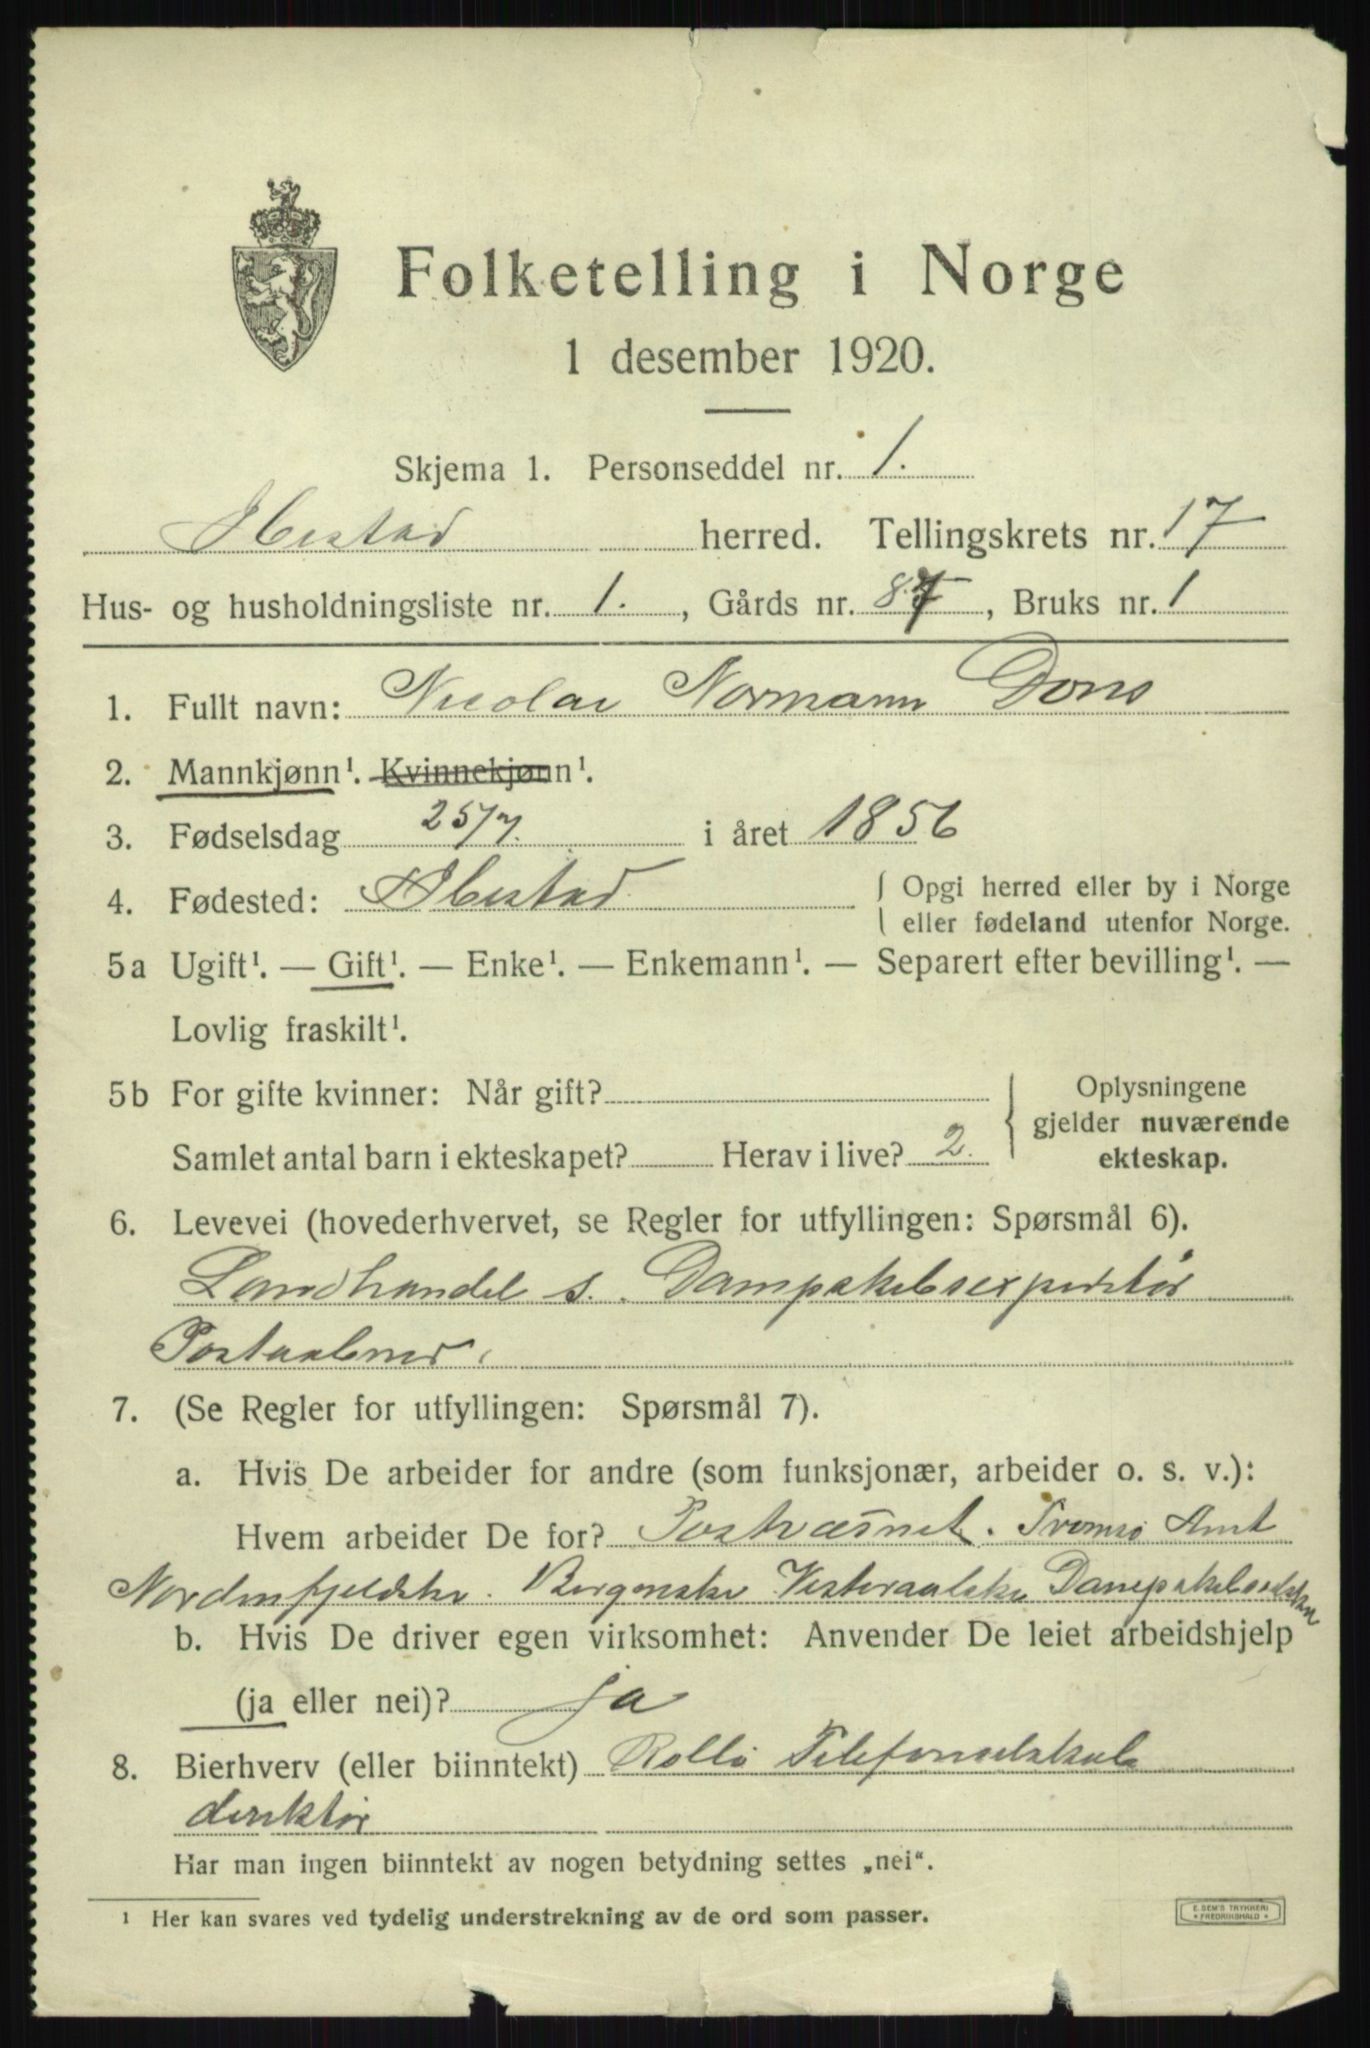 Folketelling i Norge
1 desember 1920.
Skjema 1. Personseddel nr. 1.
Ibestad herred. Tellingskrets nr. 17
Hus- og husholdningsliste nr. 1. , Gårds nr. 87 , Bruks nr. 1
1. Fullt navn: Nicolai Normann Dons
2. Mannkjønn¹. Kvinnekjønn¹.
3. Fødselsdag 25/7. i året 1856
4. Fødested: Ibestad { Opgi herred eller by i Norge
eller fødeland utenfor Norge.
5a Ugift¹. — Gift¹. — Enke¹. — Enkemann¹. — Separert efter bevilling¹. —
Lovlig fraskilt¹.
5b For gifte kvinner: Når gift? } Oplysningene
gjelder nuværende
Samlet antal barn i ekteskapet? Herav i live? 2. ekteskap.
6. Levevei (hovederhvervet, se Regler for utfyllingen: Spørsmål 6).
Landhandel s. Dampskibsexpeditør
Postaabner.
7. (Se Regler for utfyllingen: Spørsmål 7).
a. Hvis De arbeider for andre (som funksjonær, arbeider o. s. v.):
Hvem arbeider De for? Postvæsnet. Tromsø Amt
Nordenfjeldske. Bergenske Vesteraalske Dampskibsselskap
b. Hvis De driver egen virksomhet: Anvender De leiet arbeidshjelp
(ja eller nei)? ja
8. Bierhverv (eller biinntekt) Rollø Telefonselskab
direktør
Har man ingen biinntekt av nogen betydning settes „nei“.
¹ Her kan svares ved tydelig understrekning av de ord som passer.
E. SEM'S TRYKKERI
* FREDRIKSHALD *